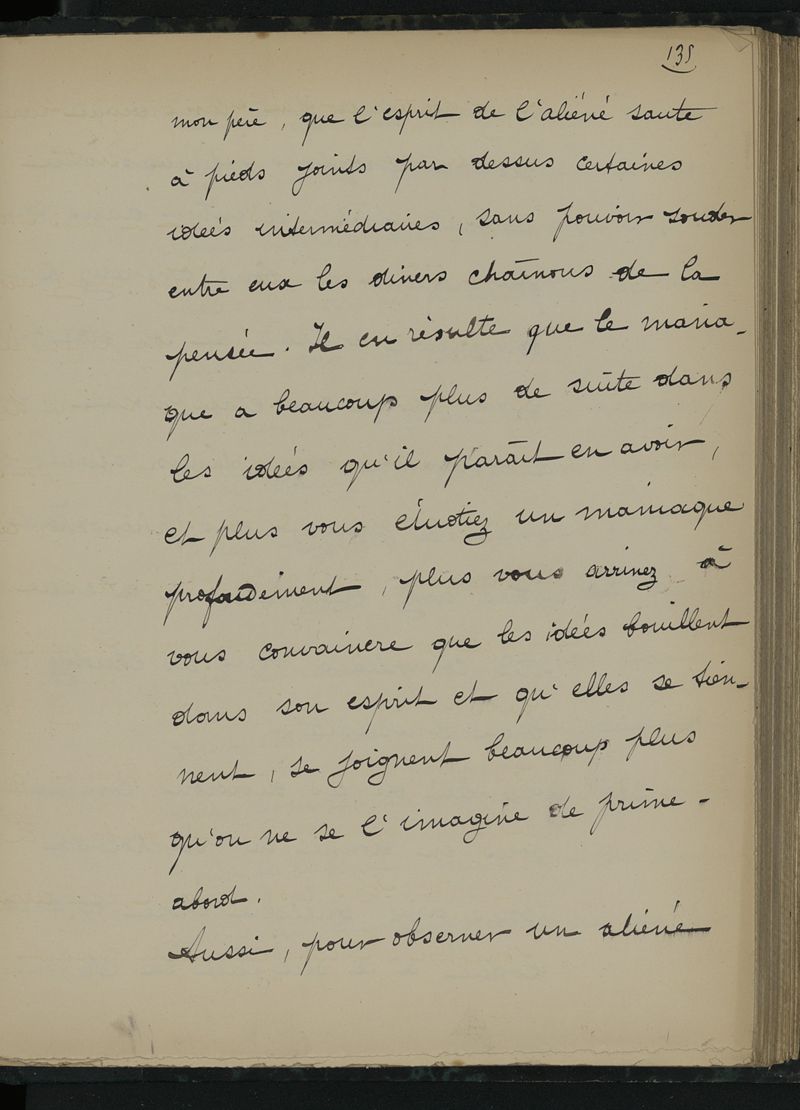 135
mon père, que l'esprit de l'aliéné saute
à pieds joints par dessus certaines
idées intermédiaires, sans pouvoir souder
entre eux les divers chaînons de la
pensée. Il en résulte que le mania-
que a beaucoup plus de suite dans
les idées qu'il paraît en avoir,
et plus vous étudiez un maniaque
profondément, plus vous arrivez à
vous convaincre que les idées bouillent
dans son esprit et qu'elles se tien-
nent, se joignent beaucoup plus
qu'on ne se l'imagine de prime-
abord.
Aussi, pour observer un aliéné